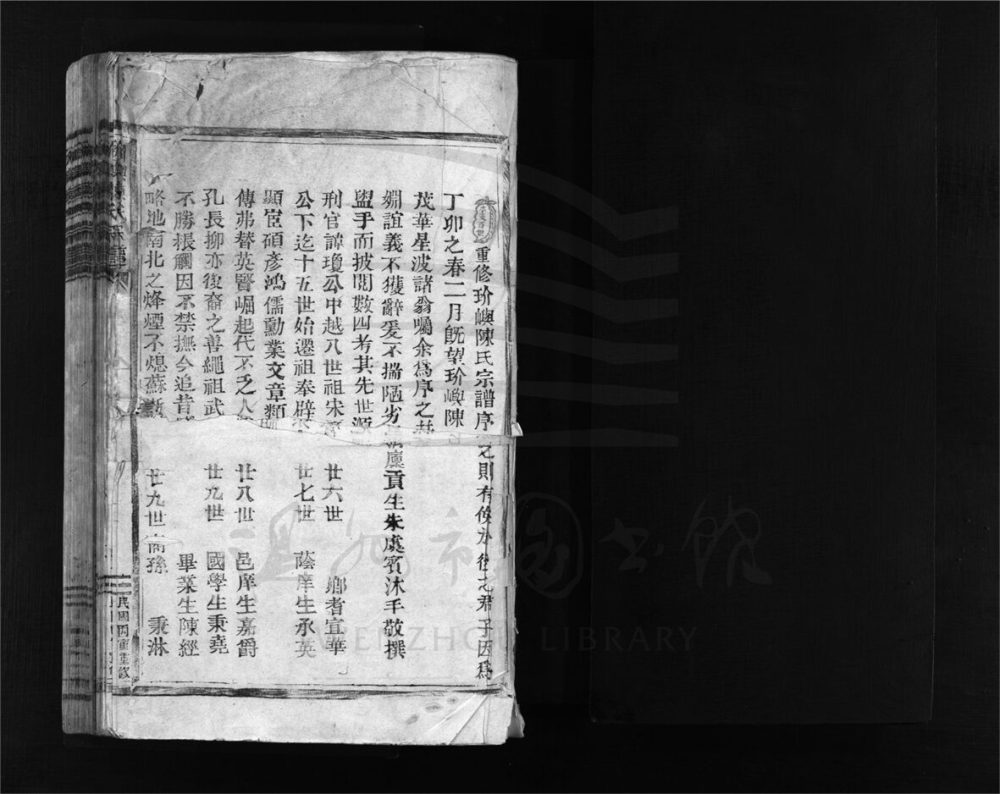 重修玠嶼陳氏宗譜序
丁卯之春二月旣望玠嶼陳
茂華星波諸翁囑余爲序之
姻誼義不獲辭爰不揣陋劣
盥手而披閱數四考其先世源
刑官諱瓊公中越八世祖宋
公下迄十五世始遷祖奉辟
顯宦碩彥鴻儒勳業文章
傳弗替英賢崛起代不乏人
孔長抑亦後裔之善繩祖武
不勝根觸因不禁撫今追昔
略地南北之烽煙不熄蘇
之則有俟於後之君子因爲
廩貢生朱處賓沐手敬撰
廿六世 鄉耆宜華
廿七世 蔭庠生承英
廿八世 邑庠生嘉爵
廿九世 國學生秉堯
畢業生陳經
廿九世裔孫 秉淋
溫州市圖書館
WENZHOU LIBRARY